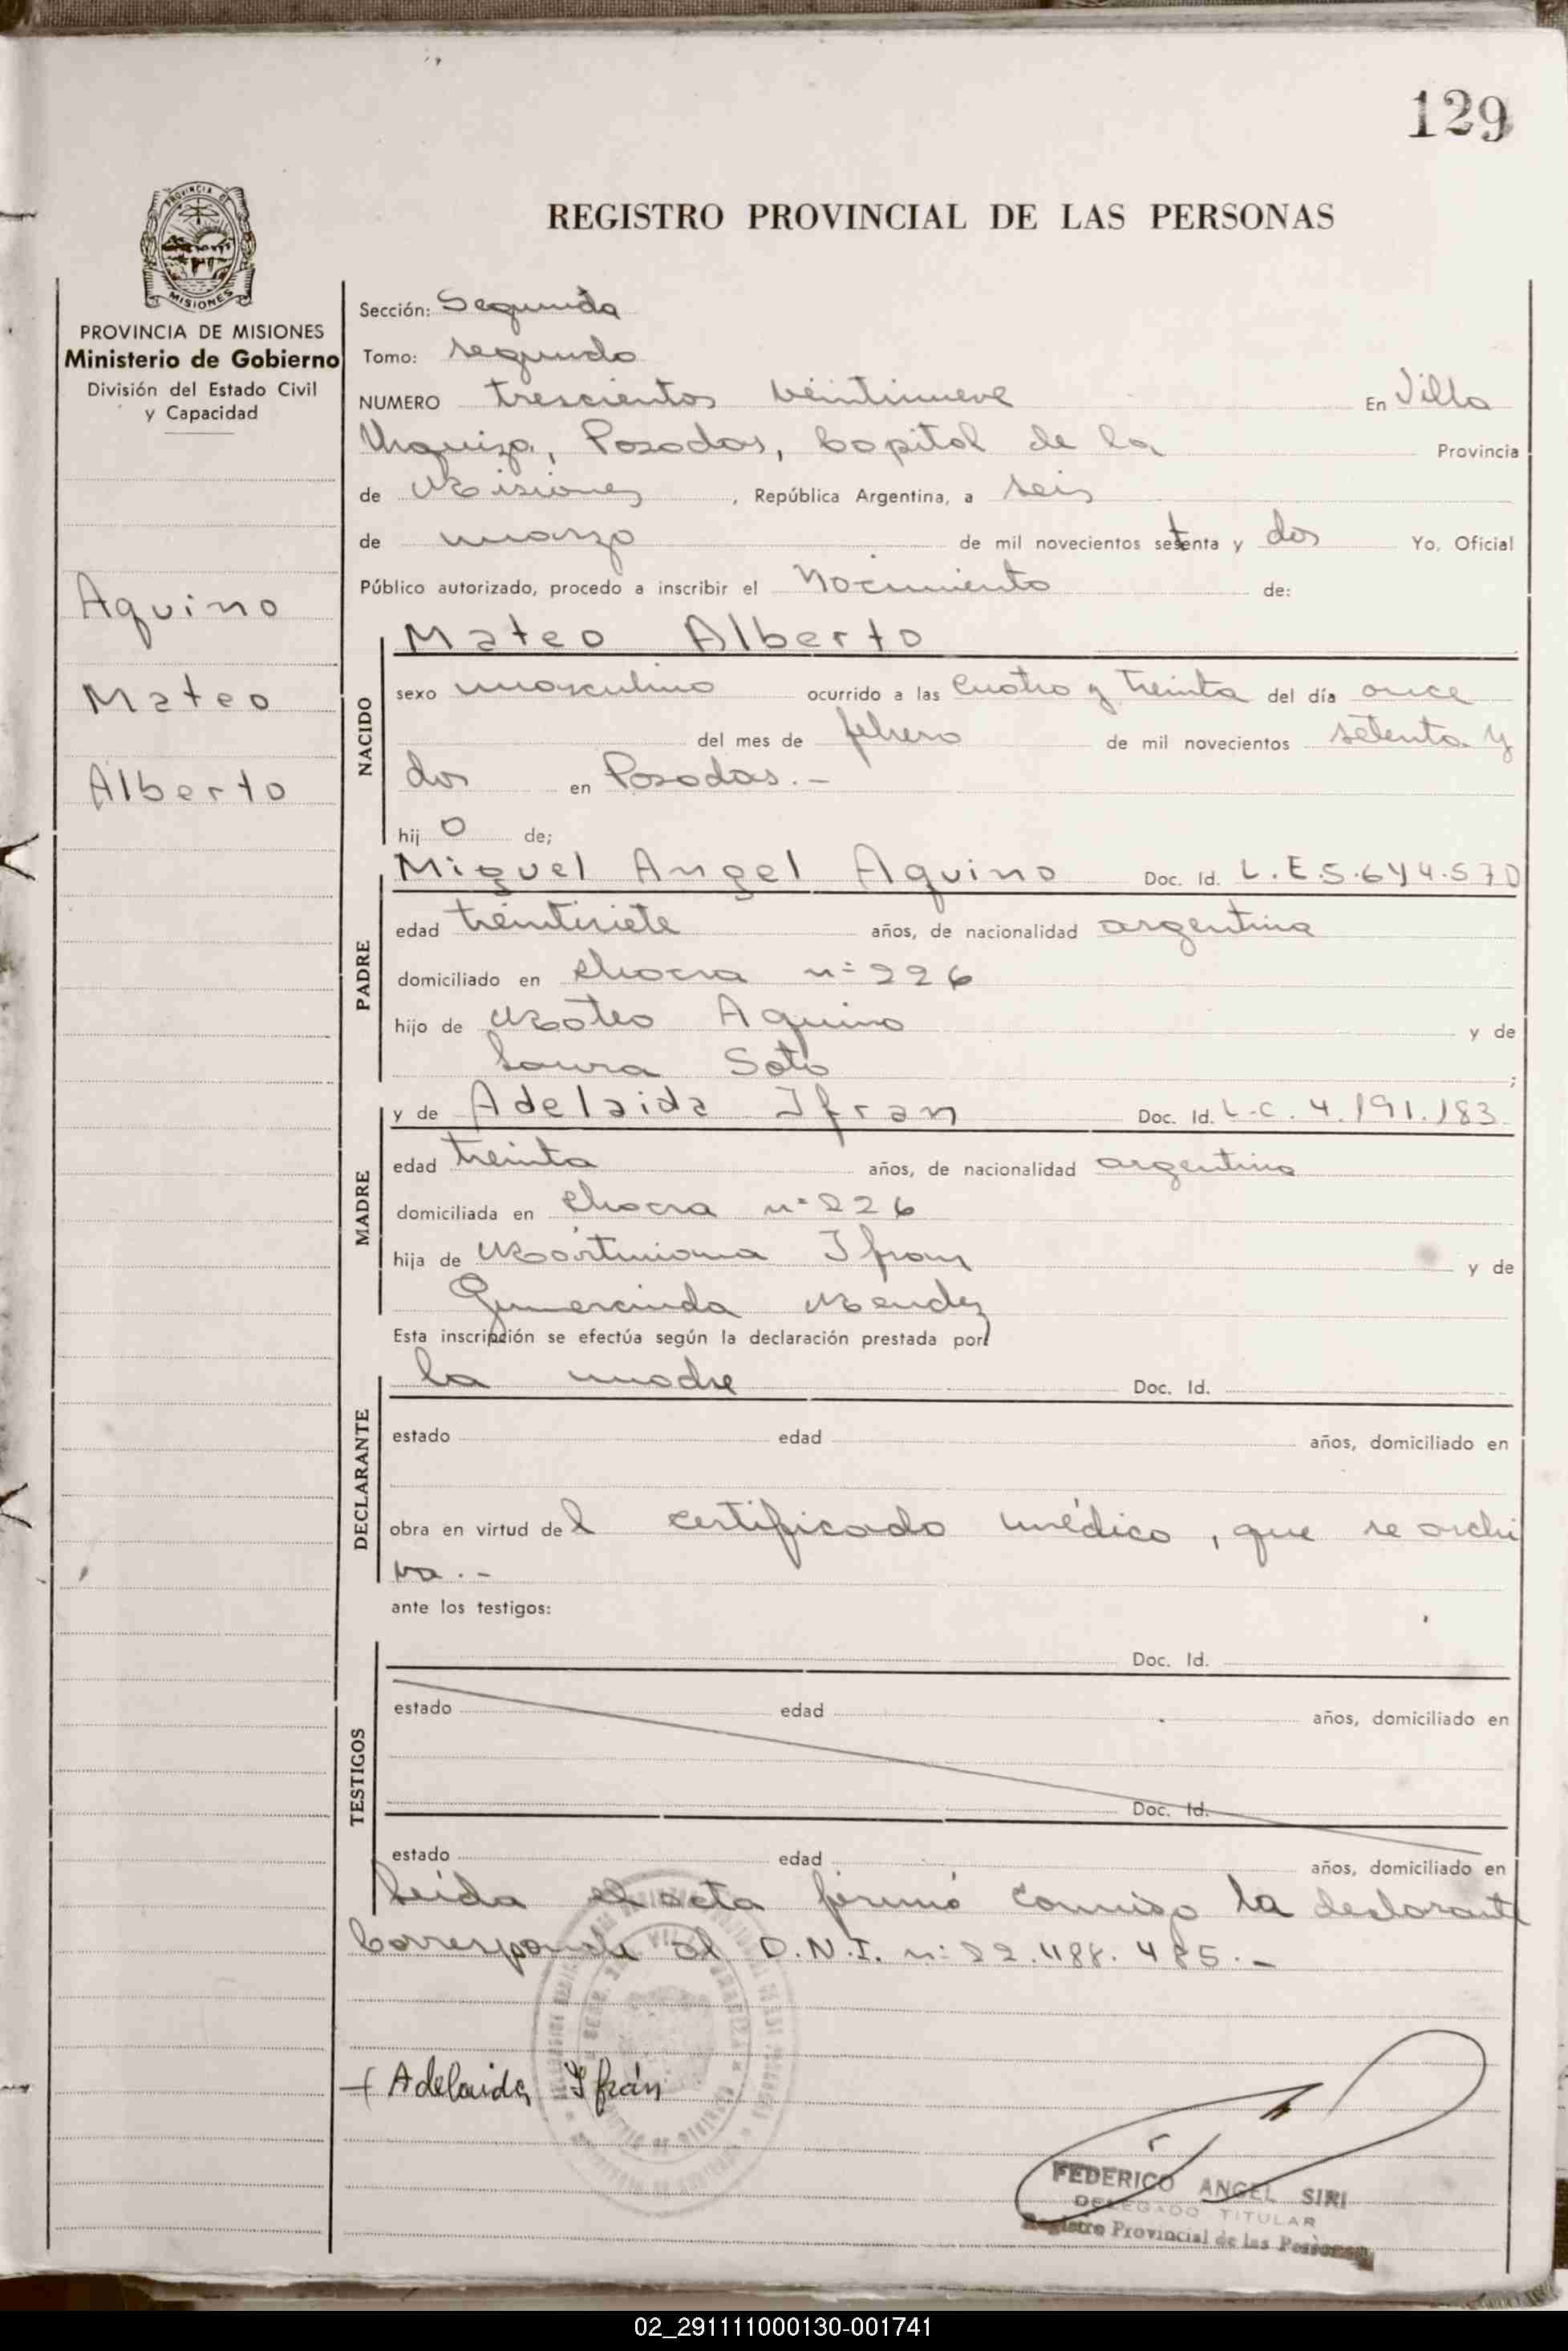 129
REGISTRO PROVINCIAL DE LAS PERSONAS
PROVINCIA DE MISIONES
MISIONES
PROVINCIA DE MISIONES
Ministerio de Gobierno
División del Estado Civil
y Capacidad
Aquino
Mateo
Alberto
Sección: Segunda
Tomo: segundo
NUMERO trescientos veintinueve En Villa
Urquiza, Posadas, Capital de la Provincia
de Misiones, República Argentina, a seis
de marzo de mil novecientos setenta y dos Yo, Oficial
Público autorizado, procedo a inscribir el Nacimiento de:
NACIDO
Mateo Alberto
sexo masculino ocurrido a las cuatro y treinta del día once
del mes de febrero de mil novecientos setenta y
dos en Posadas.-
hijo de;
PADRE
Miguel Angel Aquino Doc. Id. L.E.5.644.570
edad treintisiete años, de nacionalidad argentina
domiciliado en chacra n= 226
hijo de Mateo Aquino y de
Laura Soto ;
MADRE
y de Adelaida Ifran Doc. Id. L.C. 4.191.183
edad treinta años, de nacionalidad argentina
domiciliada en chacra n= 226
hija de Martiniana Ifran y de
Gumercinda Mendez
Esta inscripción se efectúa según la declaración prestada por:
DECLARANTE
la madre Doc. Id.
estado edad años, domiciliado en
obra en virtud del certificado médico, que se archi
va.-
ante los testigos:
TESTIGOS
Doc. Id.
estado edad años, domiciliado en
Doc. Id.
estado edad años, domiciliado en
Leida el acta firmó conmigo la declarante
Corresponde al D.N.I. n: 22.488.485.-
Adelaida Ifrán
FEDERICO ANGEL SIRI
DELEGADO TITULAR
Registro Provincial de las Personas
02_291111000130-001741